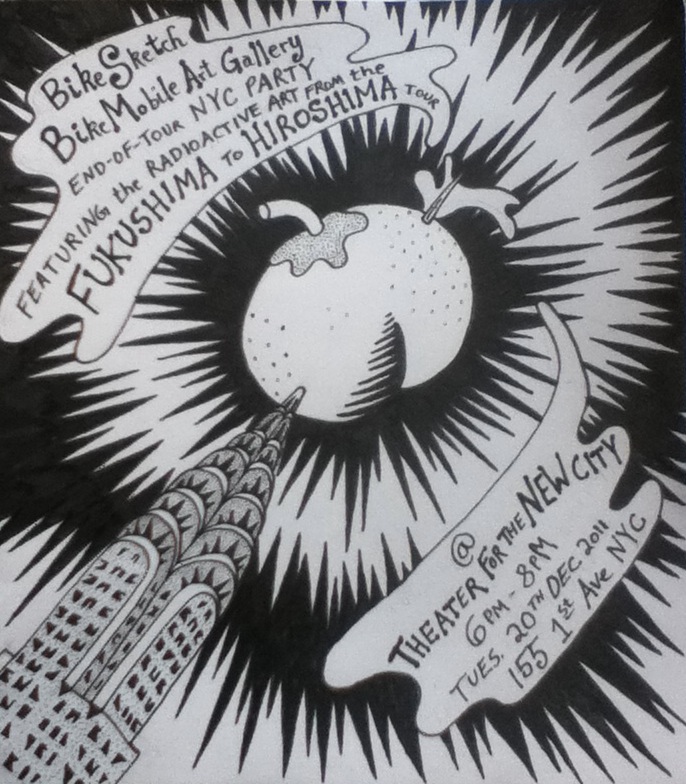 BikeSketch
BikeMobile Art Gallery
END-OF-TOUR NYC PARTY
FEATURING the RADIOACTIVE ART FROM the
FUKUSHIMA TO HIROSHIMA TOUR
@
THEATER FOR THE NEW CITY
6PM - 8PM
TUES. 20TH DEC 2011
155 1st Ave NYC